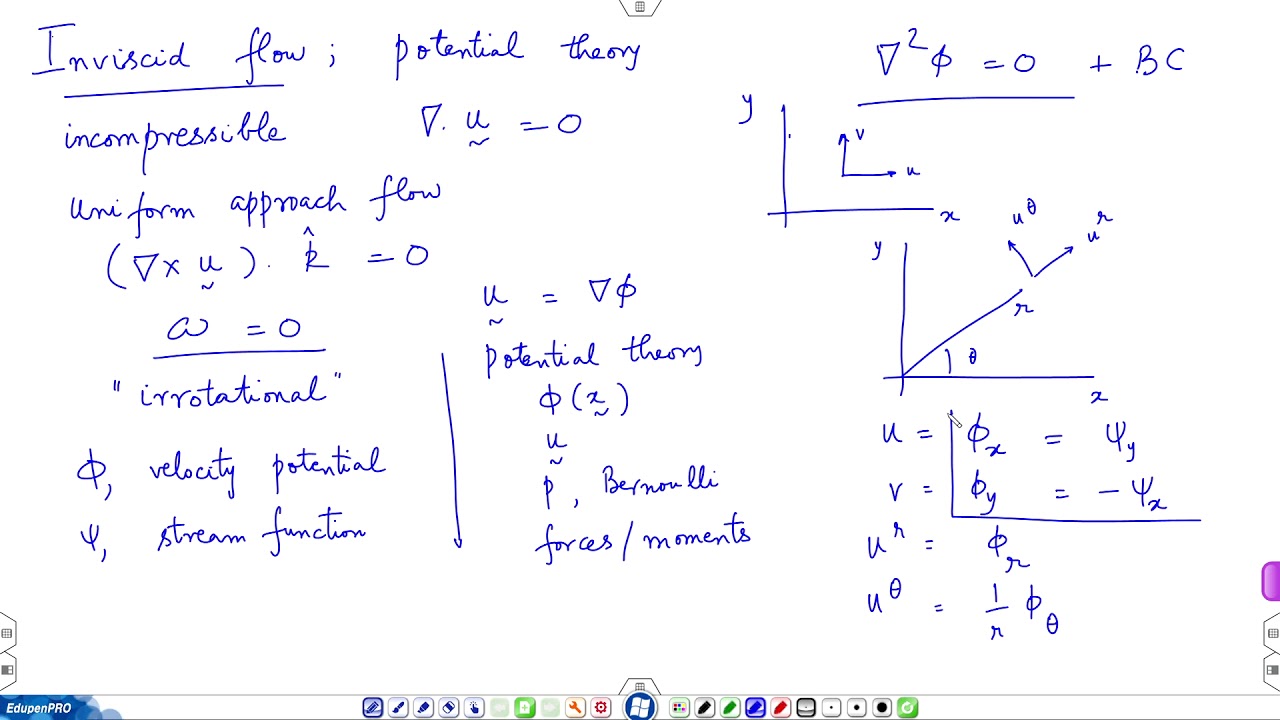 Inviscid flow ; potential theory
incompressible ∇ . ṵ = 0
uniform approach flow
(∇ × ṵ) . k̂ = 0
ω = 0
"irrotational"
Φ, velocity potential
Ψ, stream function
ṵ = ∇ϕ
potential theory
ϕ(x̰)
ṵ
p, Bernoulli
forces/moments
∇²ϕ = 0 + BC
y
v
u
x
u^θ
u^r
y
r
θ
x
u = ϕ_x = ψ_y
v = ϕ_y = - ψ_x
u^r = ϕ_r
u^θ = 1/r ϕ_θ
EdupenPRO